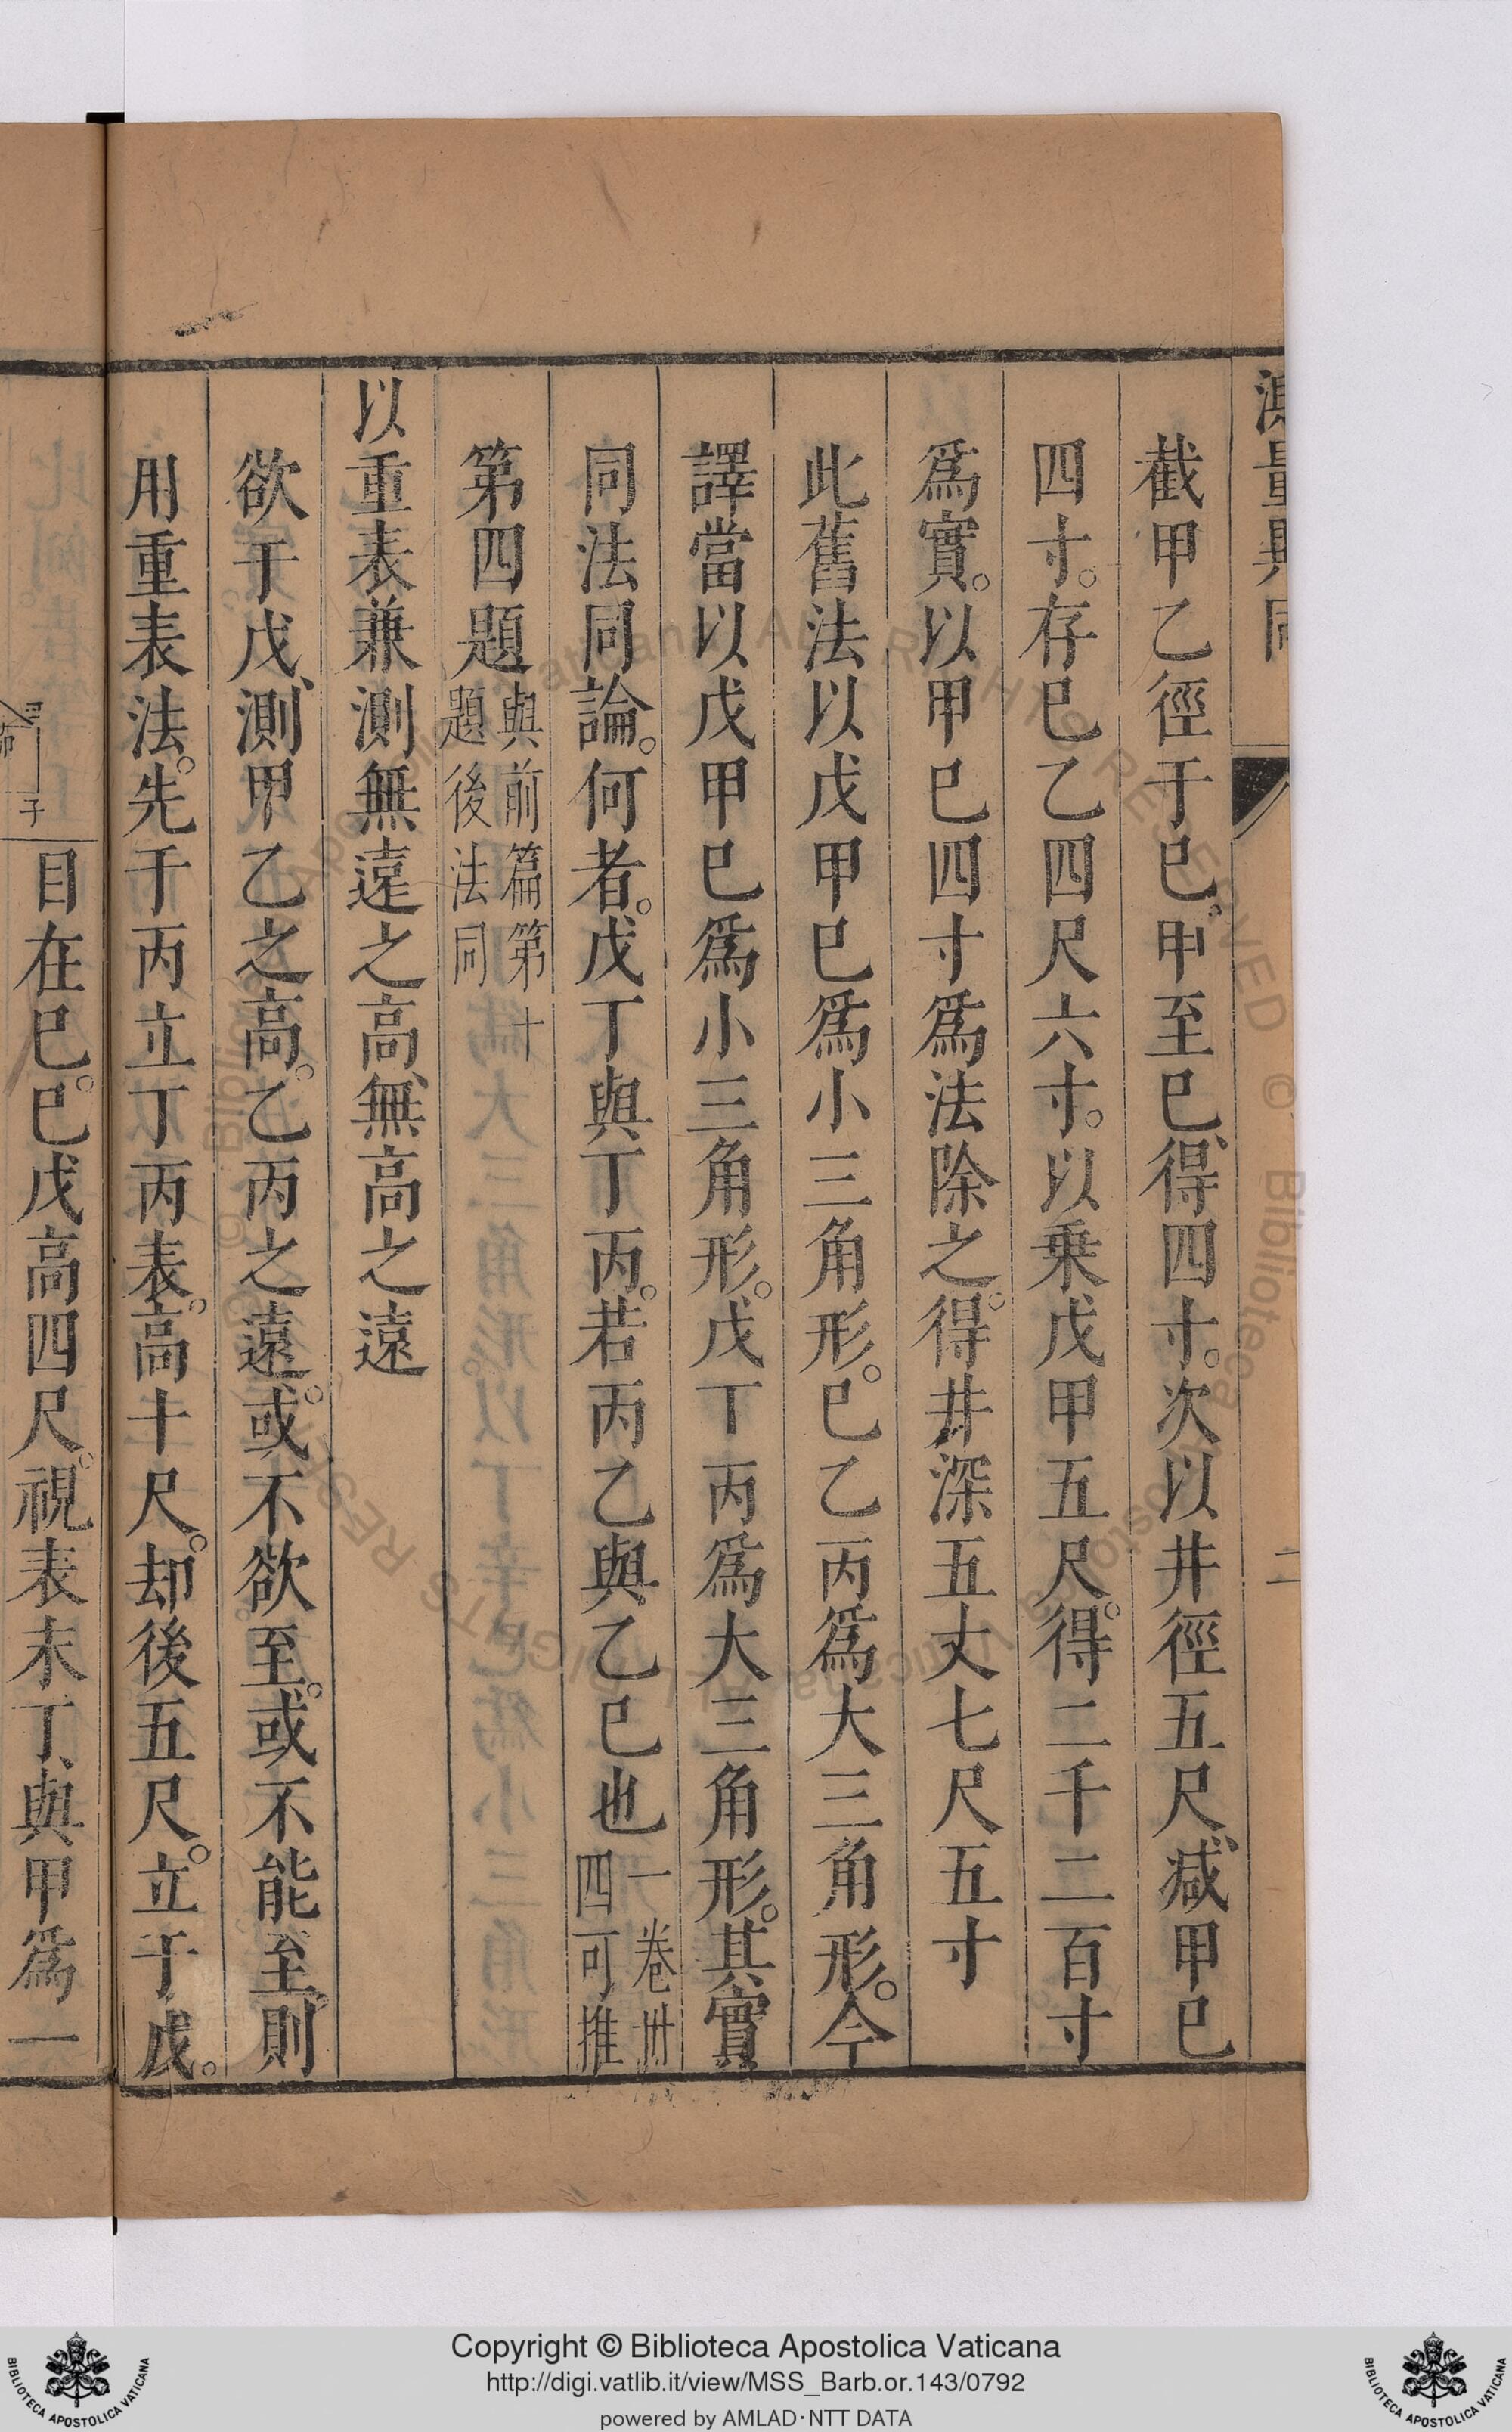 測量異同
二
截甲乙徑于巳。甲至巳、得四寸。次以井徑五尺、減甲巳
四寸。存巳乙四尺六寸。以乗戊甲五尺。得二千二百寸
爲實。以甲巳四寸爲法除之。得井深五丈七尺五寸
此舊法以戊甲巳爲小三角形。巳乙丙爲大三角形。今
譯當以戊甲巳爲小三角形。戊丁丙爲大三角形。其實
同法同論。何者。戊丁與丁丙。若丙乙與乙巳也一卷卅四可推
第四題與前篇第十題後法同
以重表兼測無遠之高、無高之遠
欲于戊、測甲乙之高。乙丙之遠。或不欲至。或不能至。則
用重表法。先于丙立丁丙表。高十尺。却後五尺。立于戊。
目在巳。巳戊高四尺。視表末丁、與甲爲一
子
Copyright © Biblioteca Apostolica Vaticana
http://digi.vatlib.it/view/MSS_Barb.or.143/0792
powered by AMLAD·NTT DATA
BIBLIOTECA APOSTOLICA VATICANA
BIBLIOTECA APOSTOLICA VATICANA